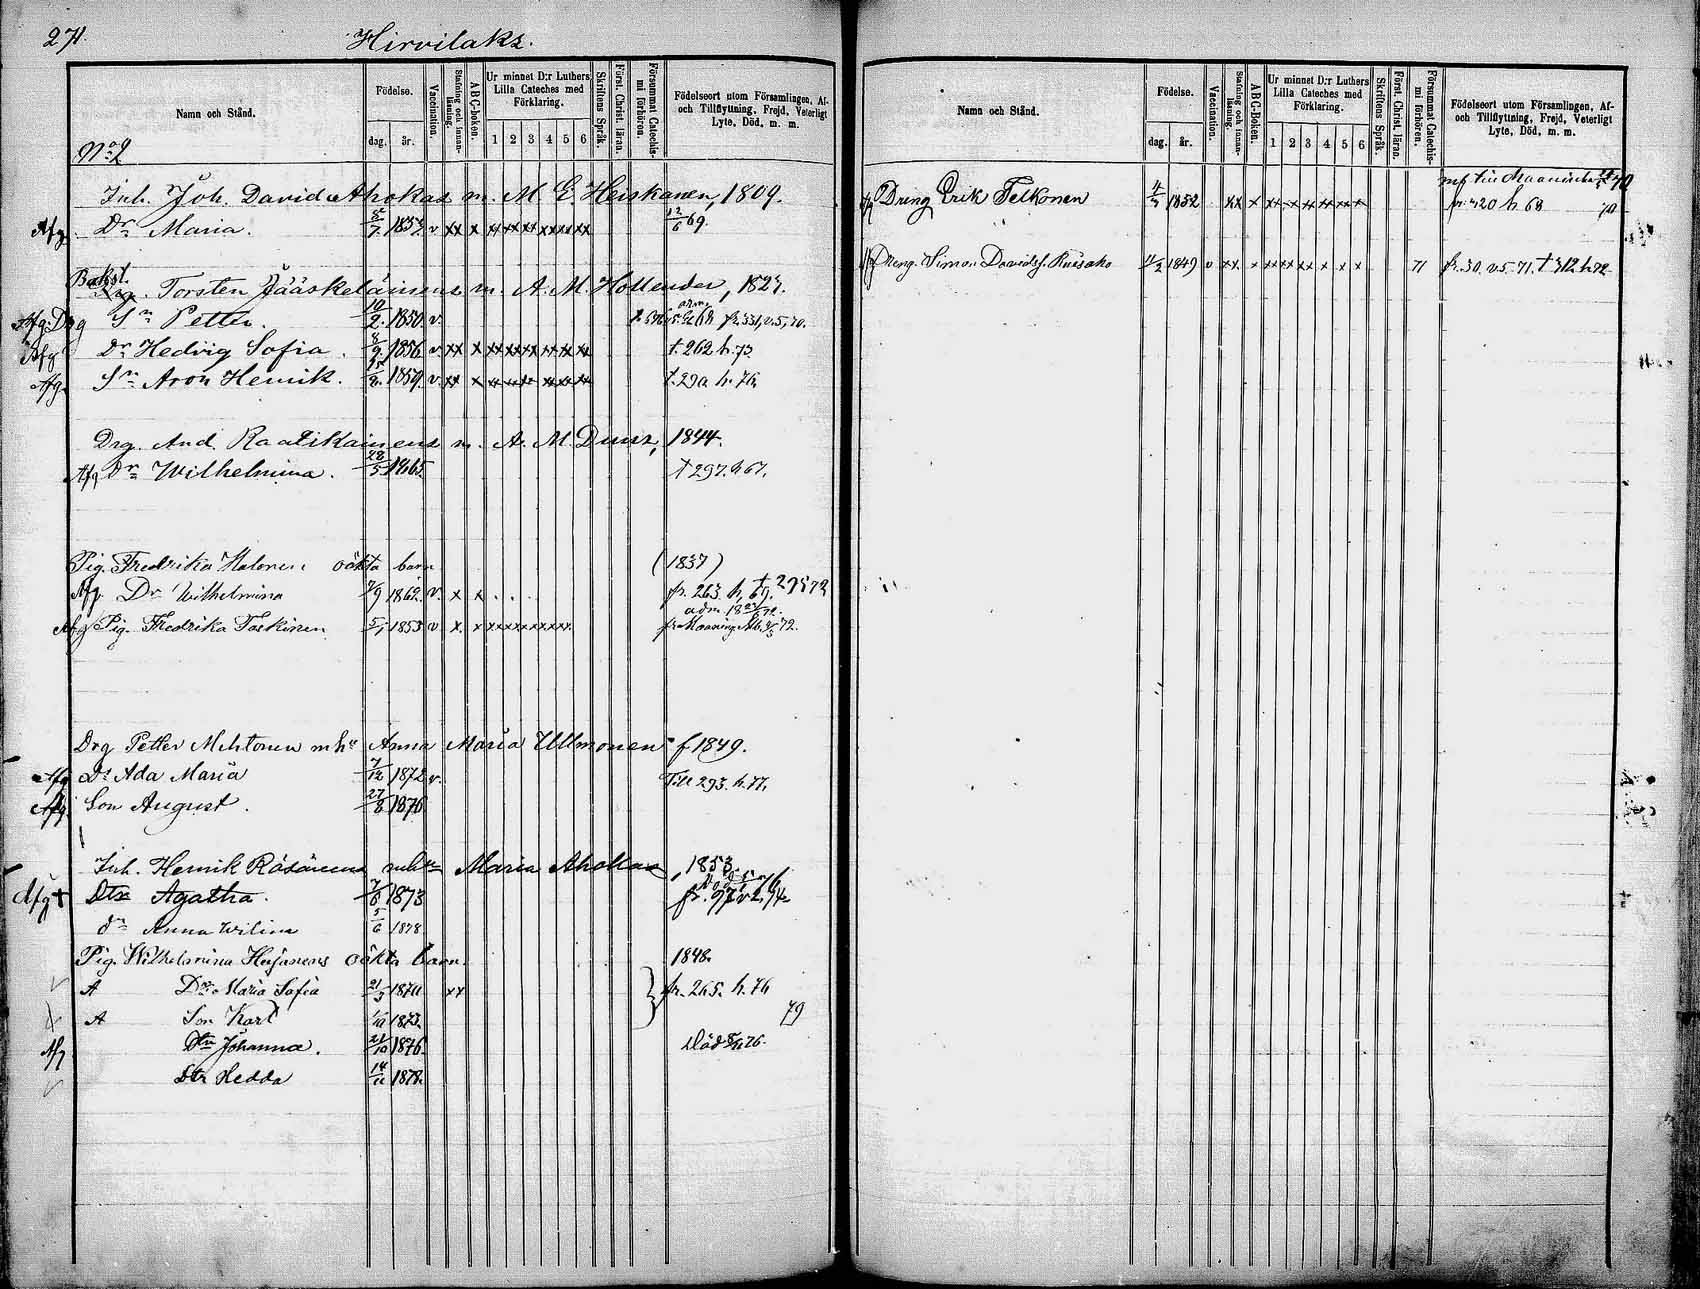 271.
Hirvilaks.
Namn och Stånd.
Födelse.
dag. år.
Vaccination.
Stafning och innan-läsning.
ABC-boken.
Ur minnet D:r Luthers Lilla Cateches med Förklaring.
1 2 3 4 5 6
Skriftens Språk.
Först. Christ. läran.
Försummat Catechis-mi förhören.
Födelseort utom Församlingen, Af-
och Tillflyttning, Frejd, Veterligt
Lyte, Död, m. m.
No 2
Inh. Joh. David Ahokas m. M E Heiskanen, 1809.
Afg. Dr Maria. 1857. v xx x xx xx xx xx xx xx 12/6 69.
Bakst. Torsten Jääskeläinens m. A. M. Hollender, 1823.
Afg. Drg Sn Petter. 10/2. 1850. v. fr. 331, v. 5, 70.
Afg Dr Hedvig Sofia. 8/9. 1856 v. xx x xx xx xx xx xx xx t. 262 h. 73.
Afg. Sn Aron Henrik. 1859. v. xx x xx xx xx xx xx xx t. 290 h. 76.
Drg. And. Raatikainens m. A. M. Duus, 1844.
Afg Dr Wilhelmina. 28/5 1865. t 297. h 67.
Pig. Fredrika Halonens oäkta barn (1837)
Afg. Dr Wilhelmina 7/9 1862. v. x x . . . fr. 263. h, 69. t 295 72
adm. 18
Afg Pig. Fredrika Toskinen 5/1 1853 v x. x x x x x x x x x 72.
Drg Petter Mehtonen mhu Anna Maria Ullmonen f 1849.
Afg Dr Ada Maria 7/12 1872 v. Till 293. h. 77.
Afg. Son August. 27/8 1876
Inh. Henrik Räsänens mhu Maria Ahokas, 1853.
Afg + Dtr Agatha. 7/6 1873 fr. 97 v 2, 74
dr Anna Wilina 5/6 1878
Pig. Wilhelmina Heijanens oäkta barn. 1848.
A Dr Maria Sofia 21/3 1870 xx } fr. 265. h. 76
A Son Karl 1873. 79
Afg Dtr Johanna. 21/10 1876. Död 76.
Dtr Hedda 14/11 1878.
Namn och Stånd.
Födelse.
dag. år.
Vaccination.
Stafning och innan-läsning.
ABC-boken.
Ur minnet D:r Luthers Lilla Cateches med Förklaring.
1 2 3 4 5 6
Skriftens Språk.
Först. Christ. läran.
Försummat Catechis-mi förhören.
Födelseort utom Församlingen, Af-
och Tillflyttning, Frejd, Veterligt
Lyte, Död, m. m.
Dreng Erik Telkonen 1852 xx x xx x xx xx x x x fr. 320 h 68
Dreng. Simon Davidss. 4/2 1849 v xx. x x xx xx x x x 71 fr. 30. v. 5. 71. t 312. h 72.